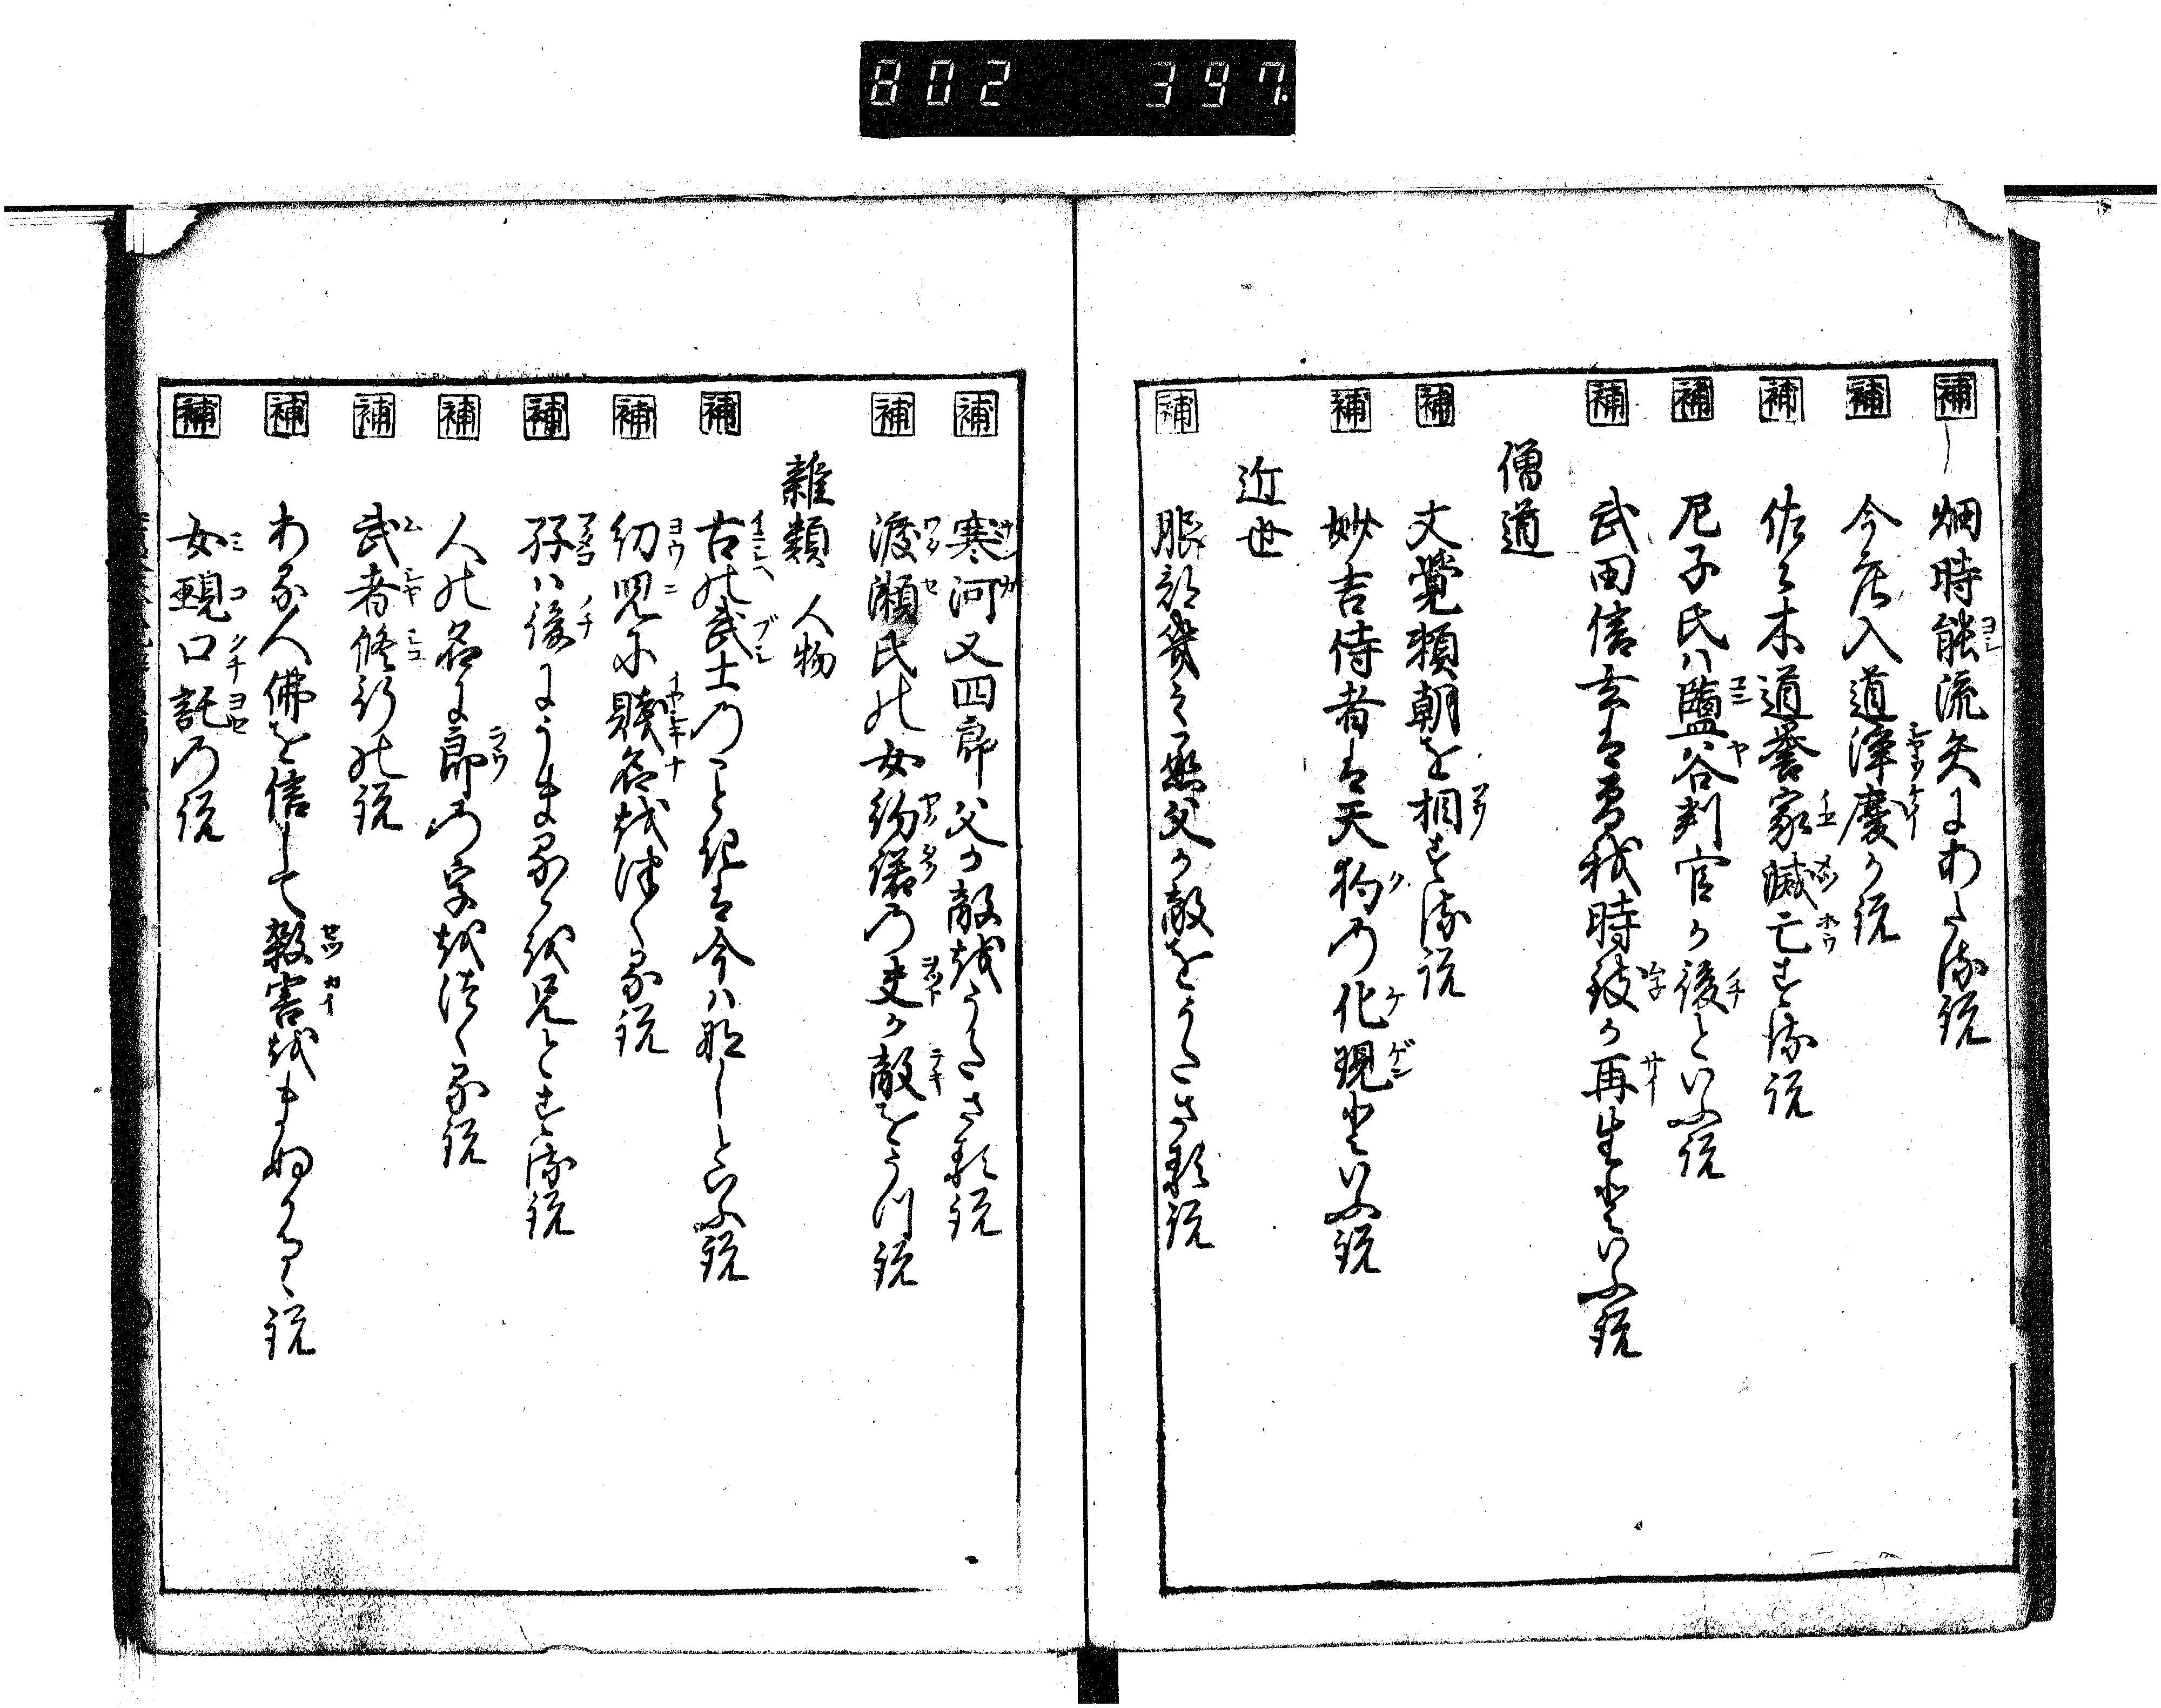 802 397
補 畑時能流矢にあたる説
補 今庄入道浄慶か説
補 佐々木道誉家滅亡する説
補 尼子氏ハ塩冶判官か後といふ説
補 武田信玄は曽我時致か再生といふ説
僧道
補 文覚頼朝を相する説
補 妙吉侍者は天狗の化現といふ説
近世
補 服部幾之烝父か敵をうたさる説
補 寒河又四郎父か敵をうたさる説
補 渡瀬氏の女約諾の夫か敵をうつ説
雑類 人物
補 古の武士のことはは今ハなしといふ説
補 幼児に賤名をつくる説
補 孖ハ後にうまるゝを兄とする説
補 人の名に郎の字をつくる説
補 武者修行の説
補 ある人仏を信して殺害をまぬかるゝ説
補 女覡口託の説